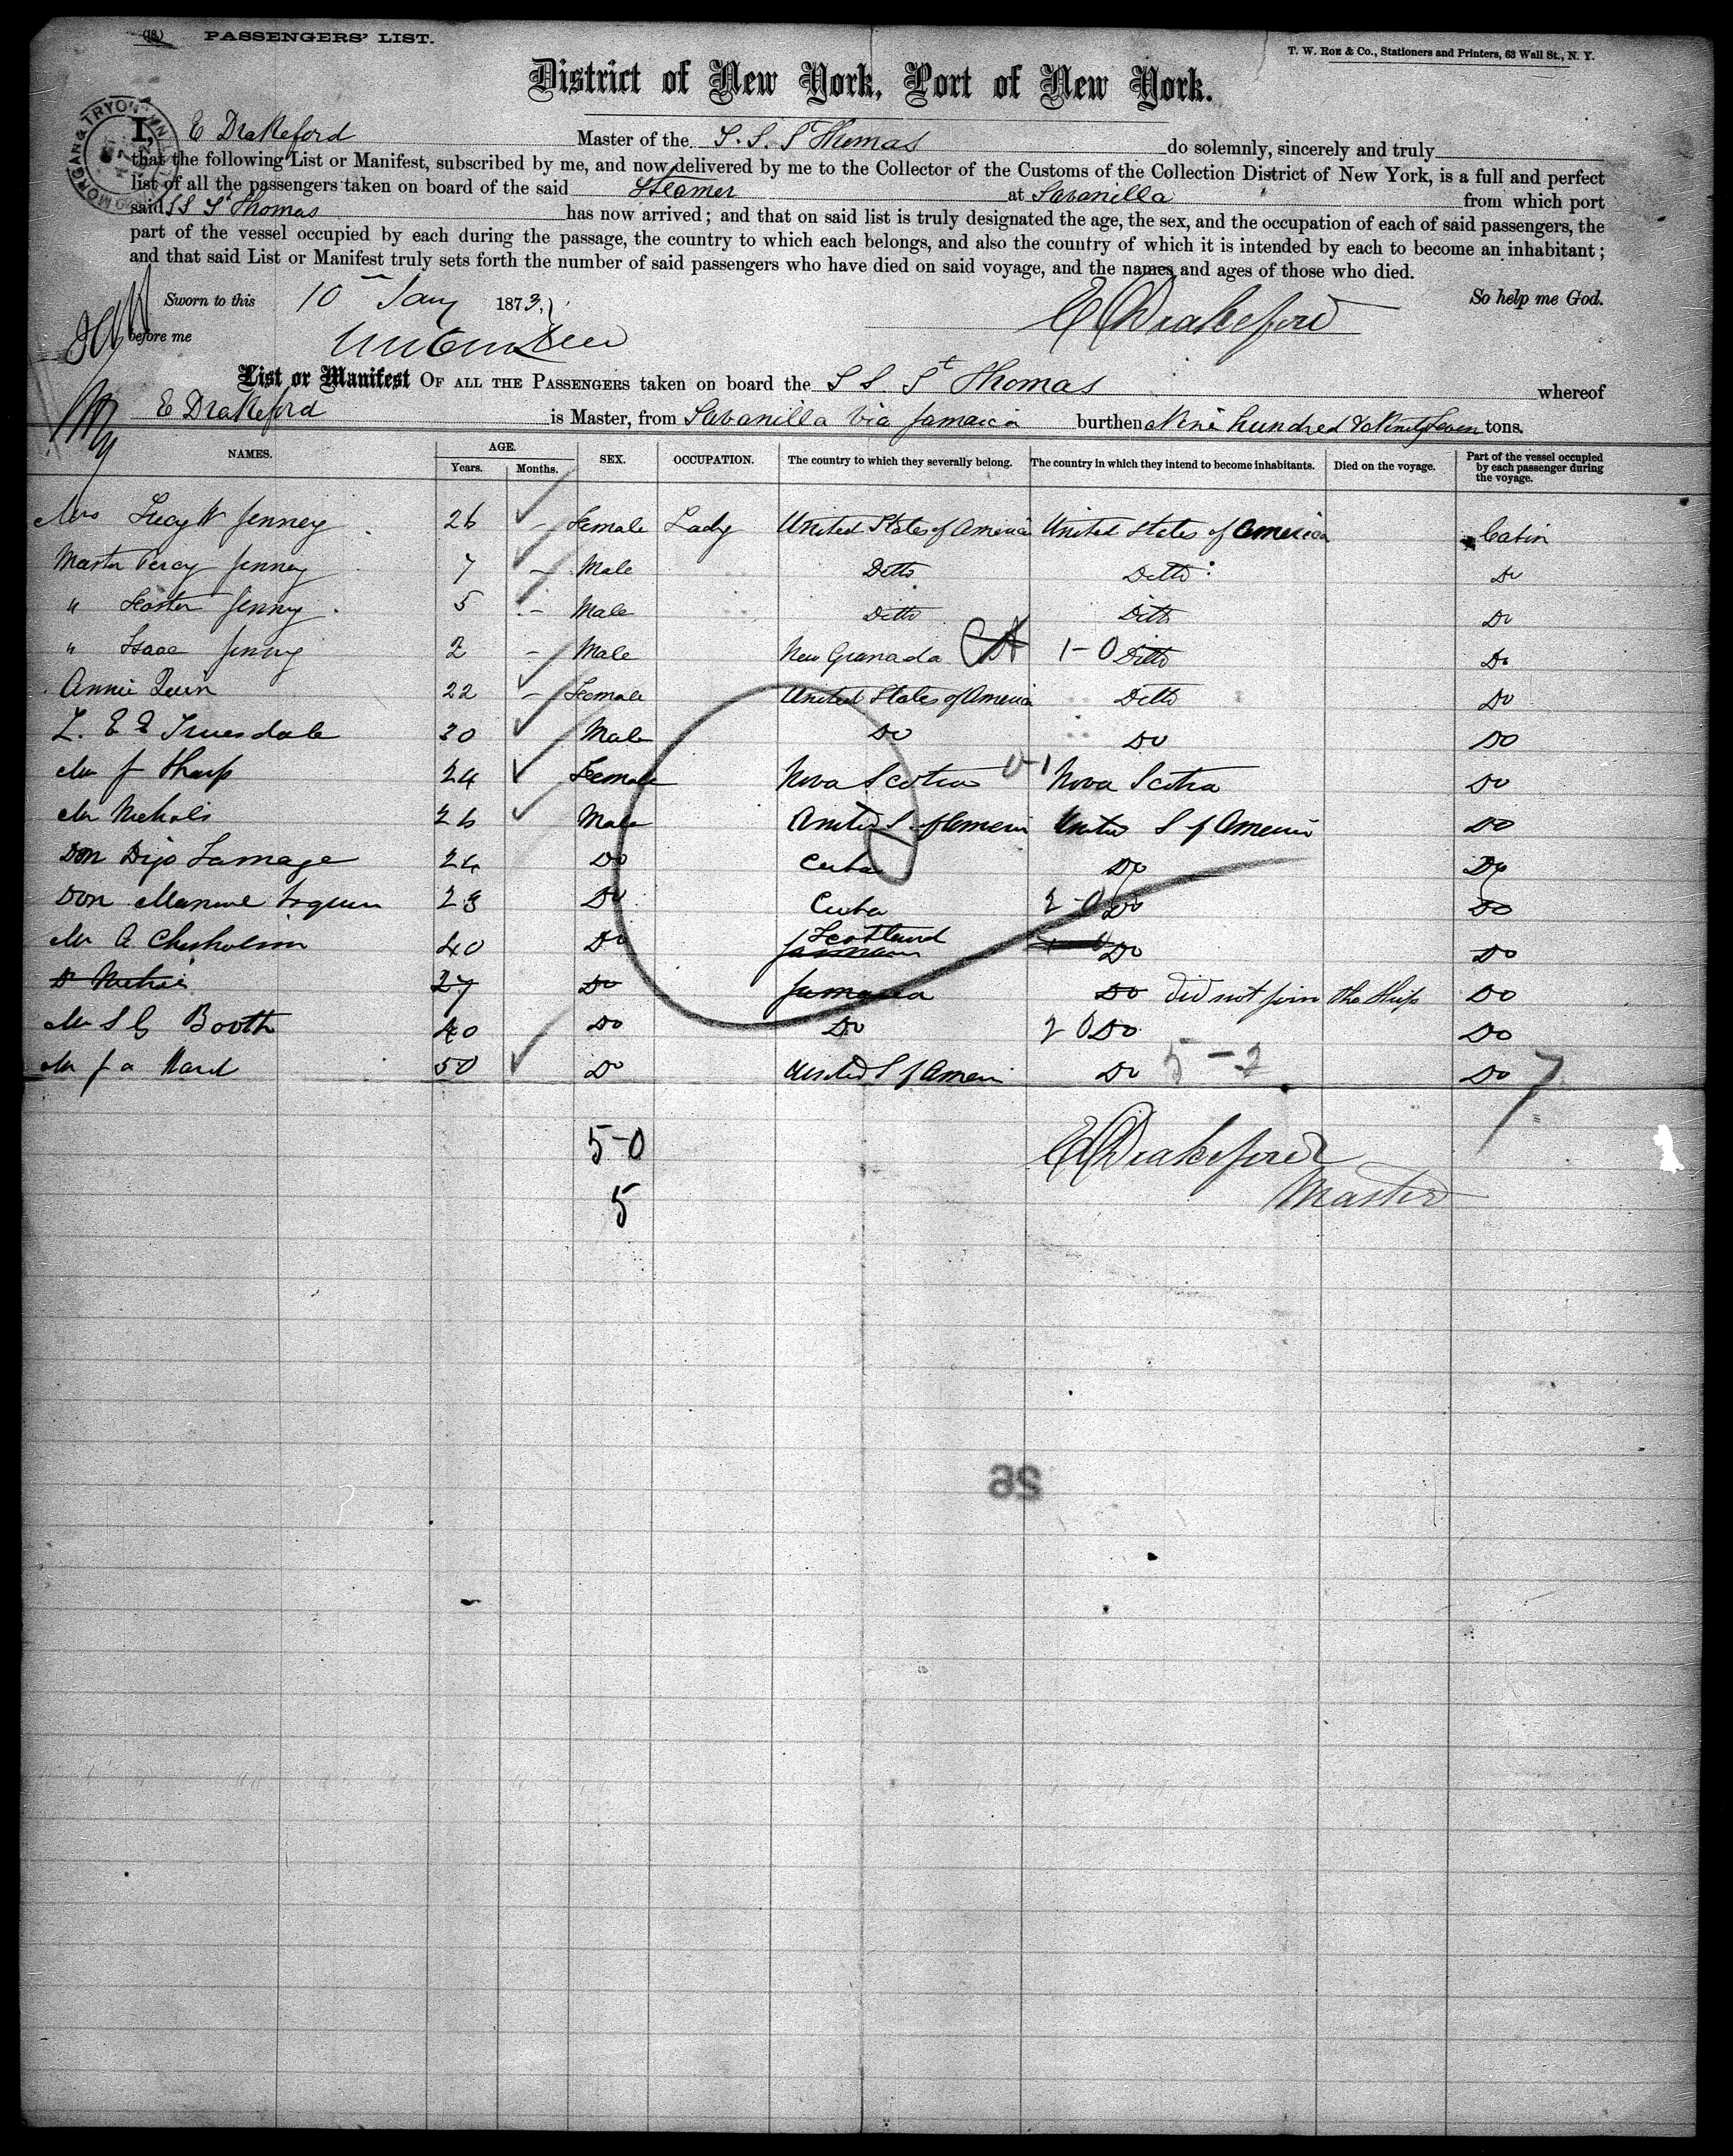 (18.) PASSENGERS' LIST.
T. W. Roe & Co., Stationers and Printers, 63 Wall St., N. Y.
District of New York, Port of New York.
I, E Drakeford Master of the S. S. St Thomas do solemnly, sincerely and truly
that the following List or Manifest, subscribed by me, and now delivered by me to the Collector of the Customs of the Collection District of New York, is a full and perfect
list of all the passengers taken on board of the said Steamer at Savanilla from which port
said SS St Thomas has now arrived; and that on said list is truly designated the age, the sex, and the occupation of each of said passengers, the
part of the vessel occupied by each during the passage, the country to which each belongs, and also the country of which it is intended by each to become an inhabitant;
and that said List or Manifest truly sets forth the number of said passengers who have died on said voyage, and the names and ages of those who died.
Sworn to this 10 Jany 1873. So help me God.
before me E Drakeford
List or Manifest Of all the Passengers taken on board the S S St Thomas whereof
E Drakeford is Master, from Savanilla via Jamaica burthen Nine hundred & Ninety Seven tons.
NAMES. AGE. Years. Months. SEX. OCCUPATION. The country to which they severally belong. The country in which they intend to become inhabitants. Died on the voyage. Part of the vessel occupied by each passenger during the voyage.
Mrs Lucy W Jenney 26 - Female Lady United States of America United States of America Cabin
Master Percy Jenney 7 - Male Ditto Ditto Do
" Foster Jenny 5 - Male Ditto Ditto Do
" Isaac Jenny 2 - Male New Granada 1-0 Ditto Do
Annie 22 - Female United States of America Ditto Do
L. E E Truesdale 30 Male Do Do Do
J Sharp 24 Female Nova Scotia 0-1 Nova Scotia Do
Mr Nichols 26 Male United S. of Americ United S of America Do
Don 24 Do Cuba Do Do
Don Manuel 23 Do Cuba 2-0 Do Do
Mr A Chisholm 40 Do Scotland Jamaica Do Do
27 Do Jamaica Do did not join the Ship Do
Mr S G Booth 40 Do Do 2 0 Do Do
Mr J a Ward 50 Do United S of Americ Do 5-2 Do
7
5-0
E Drakeford
5
Master